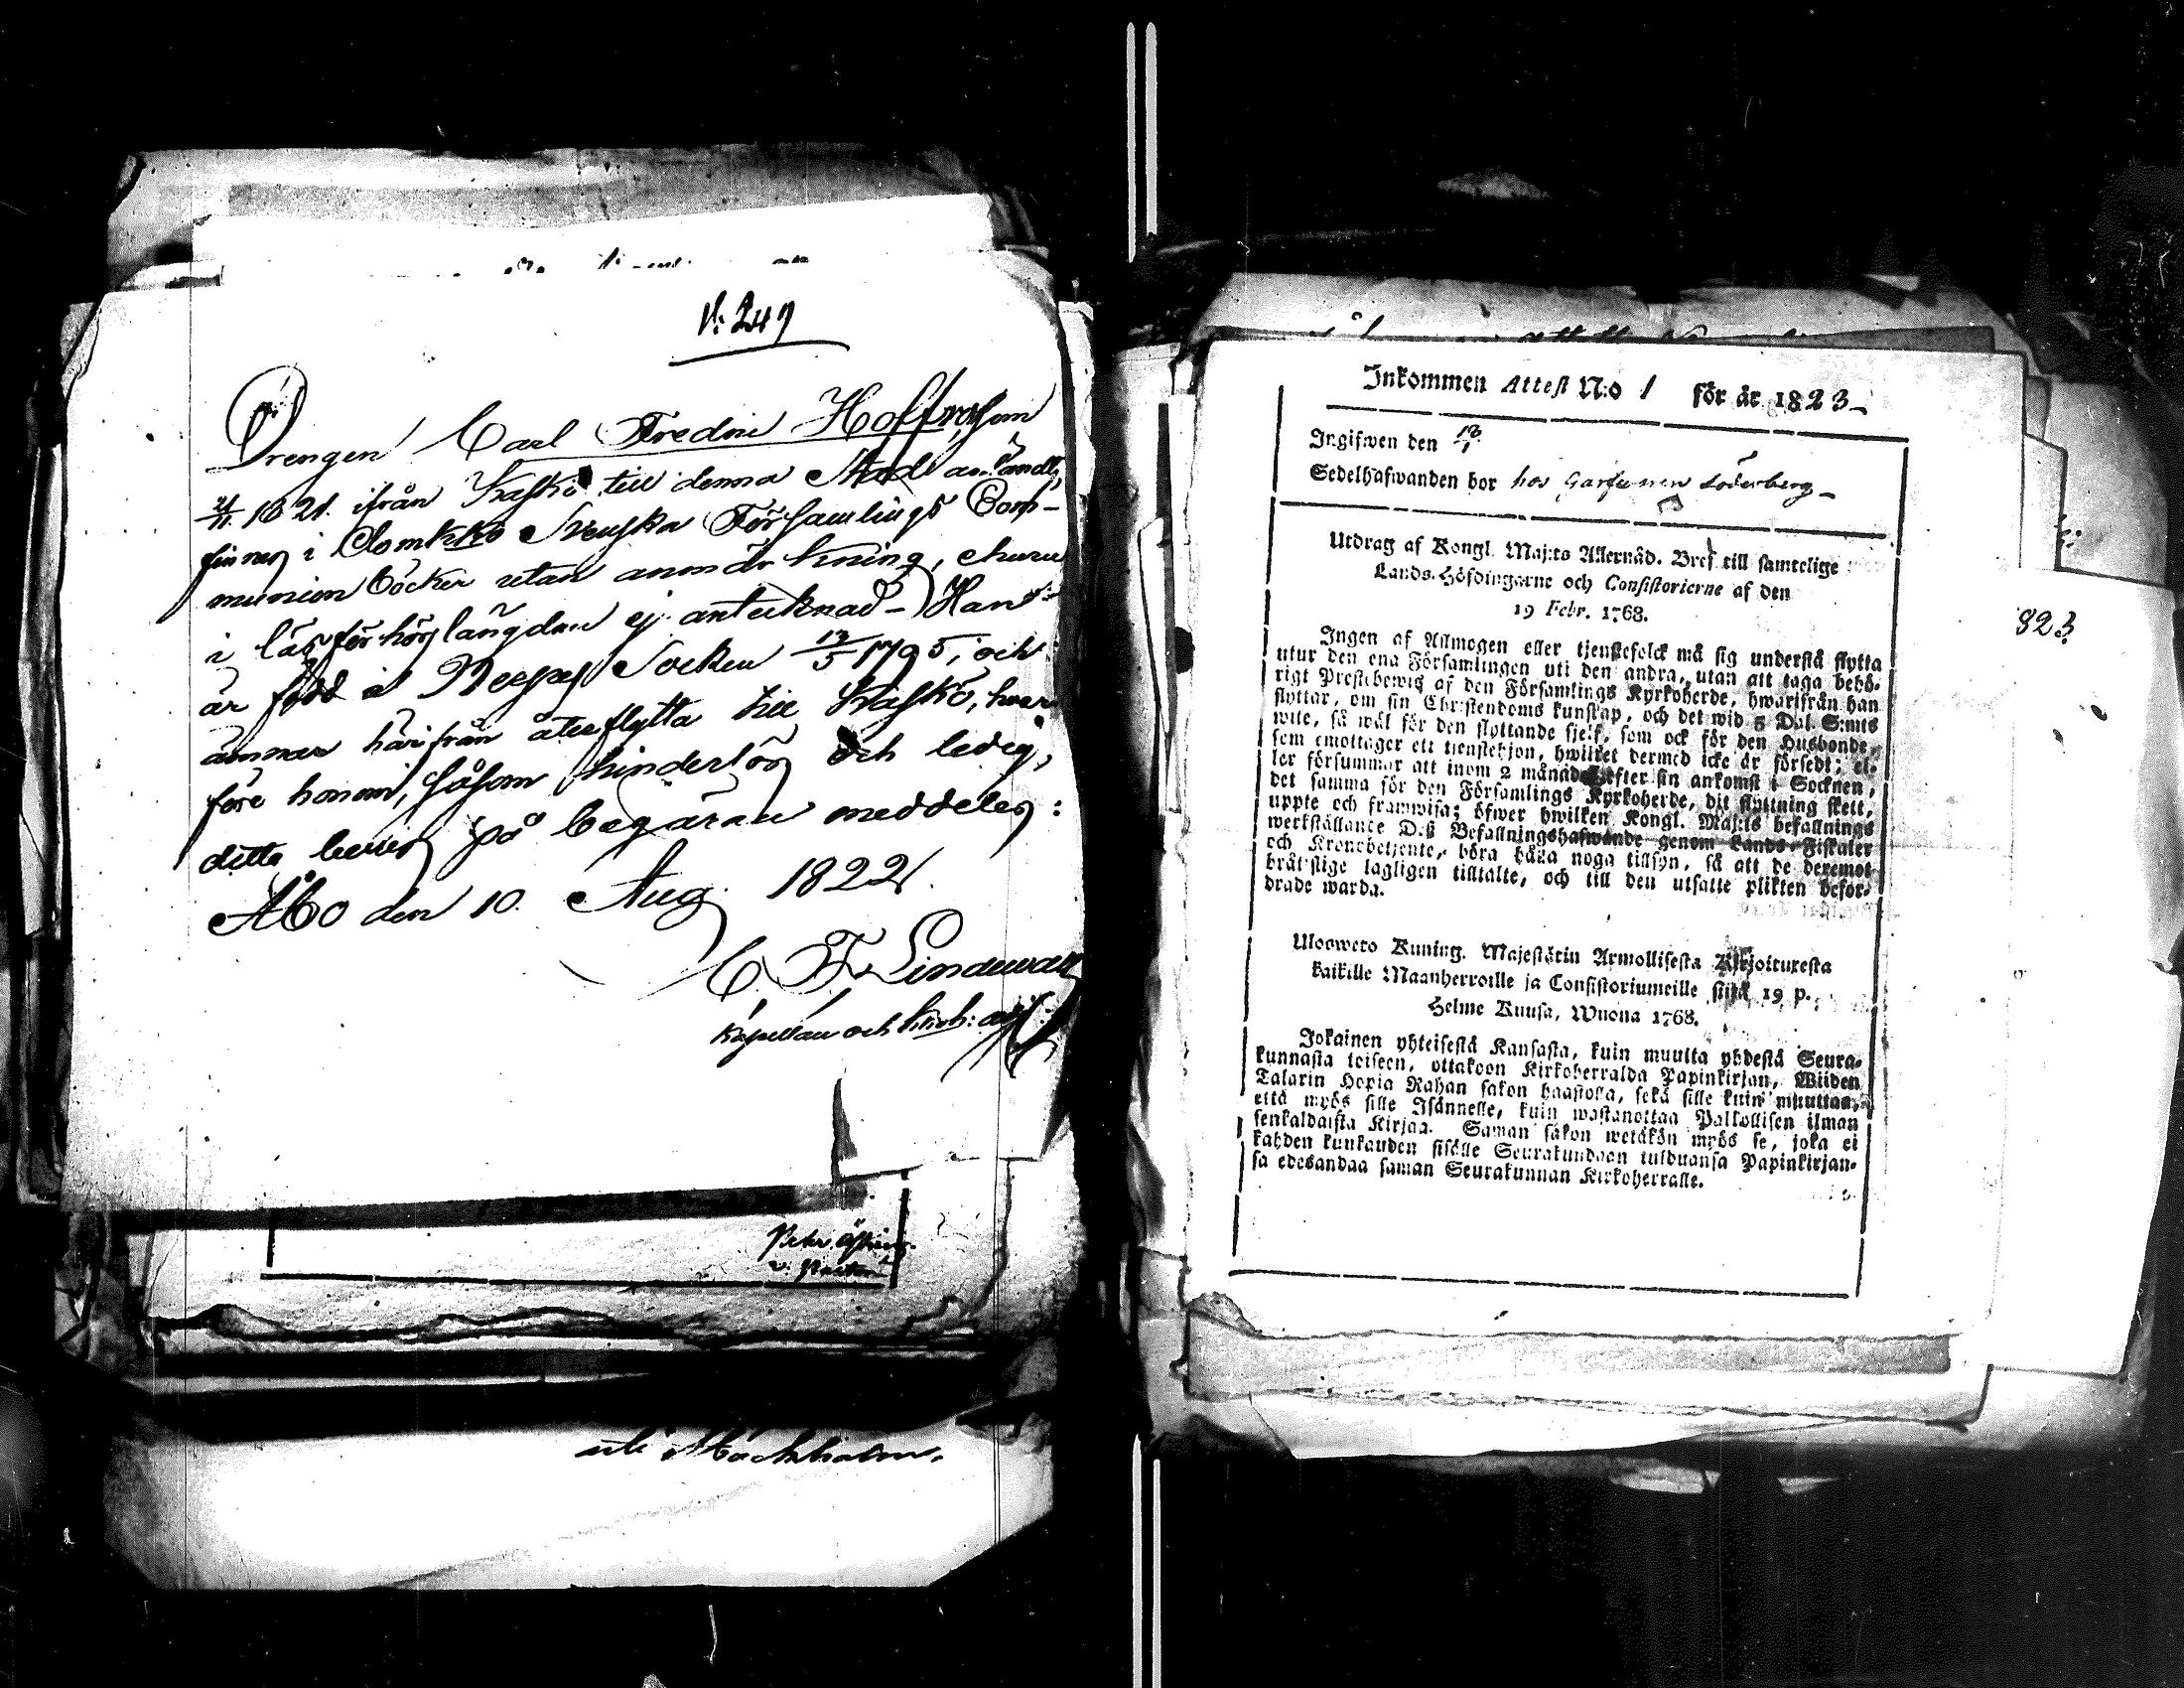 N: 249
Drengen Carl Fredric Hoffren, som
1821. ifrån Kaskö till denna Stad anländt,
finnes i Domkko Svenska Församlings Com-
munion böcker utan anmärkning, ehuru
i läsförhörslängden ej antecknad – Han
är född i Socken 13/5 1795, och
ämnar härifrån återflytta till Kaskö, hvar-
före honom, såsom hinderlös och ledig,
detta bevis på begäran meddeles:
Åbo den 10. Aug. 1822.
C. F. Lindewall
Kapellan och
Peter
uti Stockholm.
Inkommen Attest N:o 1 för år 1823-
Ingifwen den
Sedelhafwanden bor hos Garfwaren Söderberg-
Utdrag af Kongl. Maj:ts Allernåd. Bref till samtelige
Lands-Höfdingarne och Consistorierne af den
19 Febr. 1768.
Ingen af Allmogen eller tjenstefolck må sig understå flytta
utur den ena Församlingen uti den andra, utan att taga behö-
rigt Prestebewis af den Församlings Kyrkoherde, hwarifrån han
flyttar, om sin Christendoms kunskap, och det wid 5 Dal. S:mts
wite, så wäl för den flyttande sjelf, som ock för den Husbonde,
som emottager ett tjenstehjon, hwilket dermed icke är försedt; el-
ler försummar att inom 2 månader efter sin ankomst i Socknen,
det samma för den Församlings Kyrkoherde, dit flyttning skett,
uppte och framwisa; öfwer hwilken Kongl. Maj:ts befallnings
werkställande Deß Befallningshafwande genom Lands-Fiskaler
och Kronobetjente, böra hålla noga tillsyn, så att de deremot
brätslige lagligen tilltalte, och till den utsatte plikten befor-
drade warda.
Ulosweto Kuning. Majestätin Armollisesta Kirjoituxesta
kaikille Maanherroille ja Consistoriumeille siitä 19 p.
Helme Kuusa, Wuona 1768.
Jokainen yhteisestä Kansasta, kuin muutta yhdestä Seura-
kunnasta toiseen, ottakoon Kirkoherralda Papinkirjan, Wiiden
Talarin Hopia Rahan sakon haastolla, sekä sille kuin muuttaa,
että myös sille Isännelle, kuin wastanottaa Palkollisen ilman
senkaldaista Kirjaa. Saman sakon wetäkön myös se, joka ei
kahden kuukauden sisälle Seurakundaan tulduansa Papinkirjan-
sa edesandaa saman Seurakunnan Kirkoherralle.
823